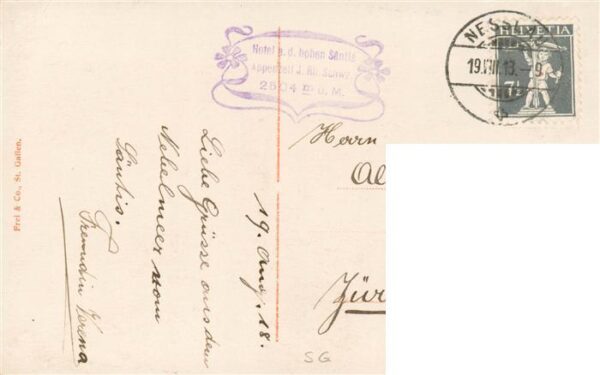 Hotel a. d. hohen Säntis
Appenzell I. Rh. Schweiz
2504 m ü. M.
NESSL
19.VIII.13.-9
HELVETIA
7½
Frei & Co., St. Gallen.
19. Aug. 18.
Liebe Grüsse aus dem
Nebelmeer vom
Säntis.
Freundin Verena
Herrn
Al
Zür
SG